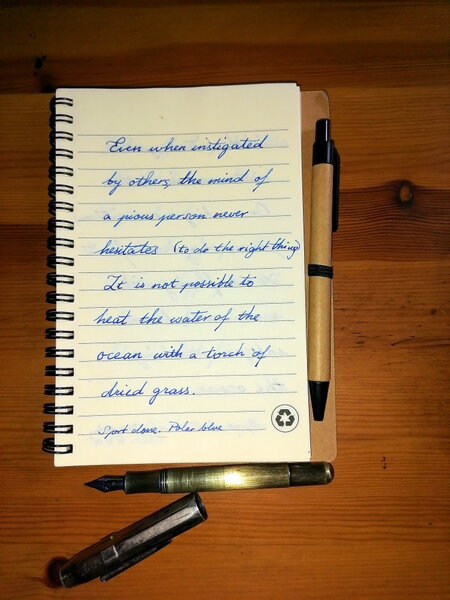 Even when instigated
by others, the mind of
a pious person never
hesitates (to do the right thing)
It is not possible to
heat the water of the
ocean with a torch of
dried grass.
Sport clone. Polar blue